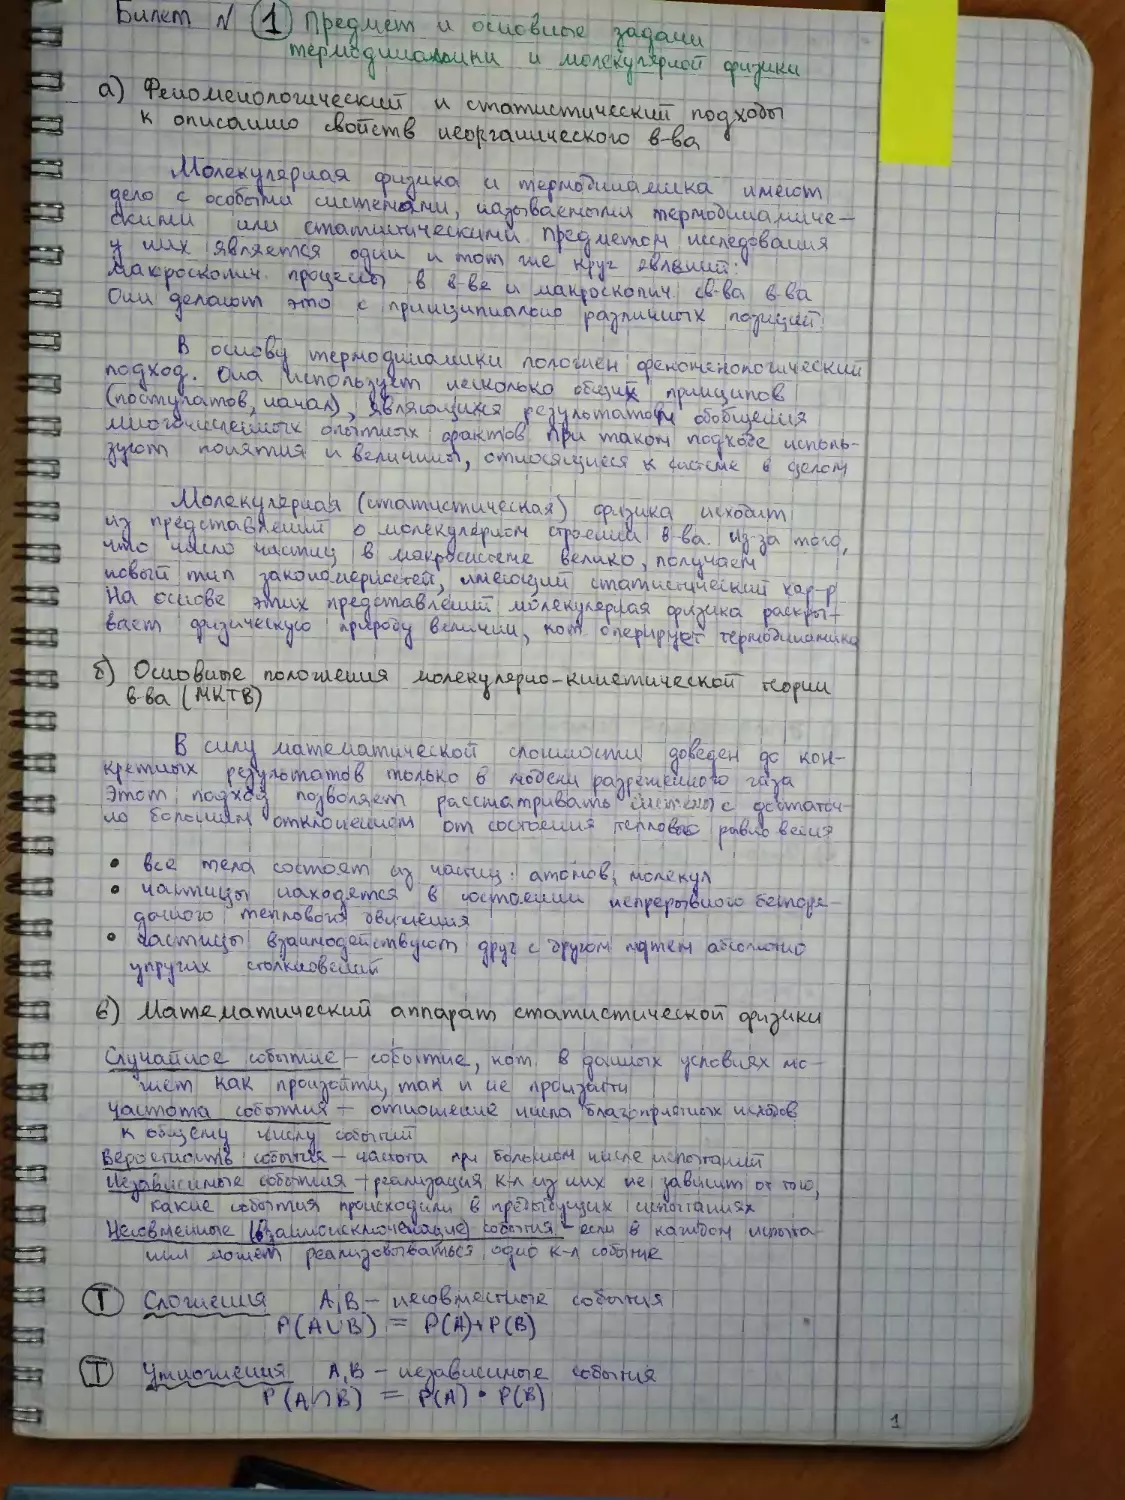 Билет № 1 Предмет и основные задачи
термодинамики и молекулярной физики
а) Феноменологический и статистический подходы
к описанию свойств неорганического в-ва
Молекулярная физика и термодинамика имеют
дело с особыми системами, называемыми термодинамиче-
скими или статистическими. Предметом исследования
у них является один и тот же круг явлений:
макроскопич. процессы в в-ве и макроскопич. св-ва в-ва
Они делают это с принципиально различных позиций.
В основу термодинамики положен феноменологический
подход. Она использует несколько общих принципов
(постулатов, начал), являющихся результатом обобщения
многочисленных опытных фактов. При таком подходе исполь-
зуют понятия и величины, относящиеся к системе в целом
Молекулярная (статистическая) физика исходит
из представлений о молекулярном строении в-ва. Из-за того,
что число частиц в макросистеме велико, получаем
новый тип закономерностей, имеющий статистический хар-р
На основе этих представлений молекулярная физика раскры-
вает физическую природу величин, кот. оперирует термодинамика
б) Основные положения молекулярно-кинетической теории
в-ва (МКТВ)
В силу математической сложности доведен до кон-
кретных результатов только в модели разреженного газа
Этот подход позволяет рассматривать системы с достаточ-
но большим отклонением от состояния теплового равновесия
• все тела состоят из частиц: атомов, молекул
• частицы находятся в состоянии непрерывного беспоря-
дочного теплового движения
• частицы взаимодействуют друг с другом путем абсолютно
упругих столкновений
в) Математический аппарат статистической физики
Случайное событие – событие, кот. в данных условиях мо-
жет как произойти, так и не произойти
Частота события – отношение числа благоприятных исходов
к общему числу событий
Вероятность события – частота при большом числе испытаний
Независимые события – реализация к-л из них не зависит от того,
какие события происходили в предыдущих испытаниях
Несовменные (взаимоисключающие) события – если в каждом испыта-
нии может реализовываться одно к-л событие
Т Сложения A, B – несовместные события
P(A∪B) = P(A)+P(B)
Т Умножения A, B – независимые события
P(A∩B) = P(A) • P(B)
1